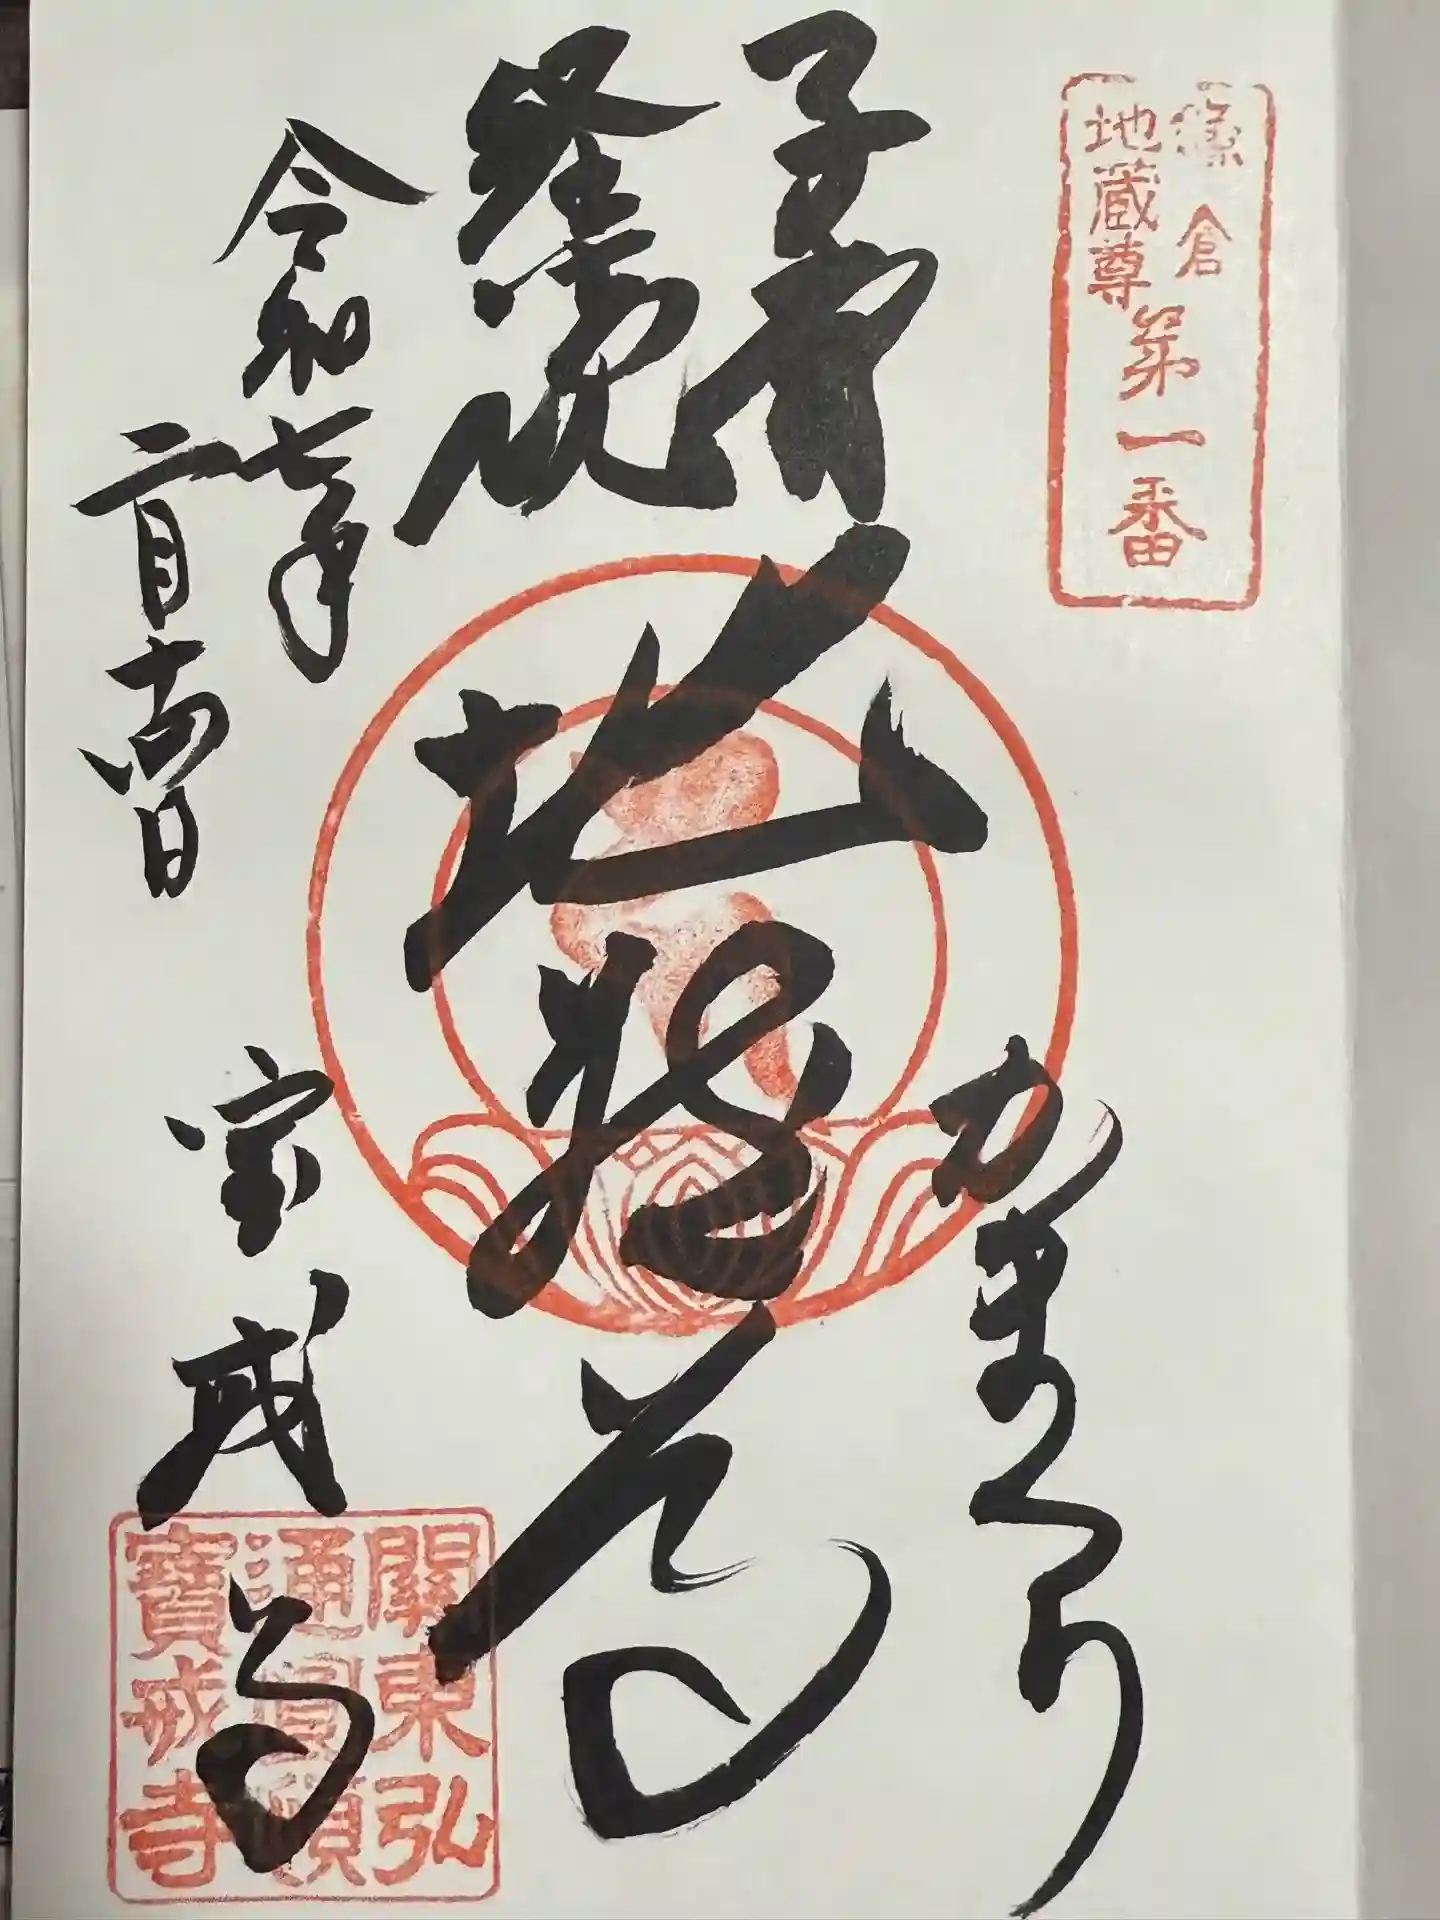 鎌倉
地蔵尊
第一番
かまくら
子育
経読
地蔵尊
令和七年
二月十四日
宝戒寺
關東弘
通圓頓
寶戒寺